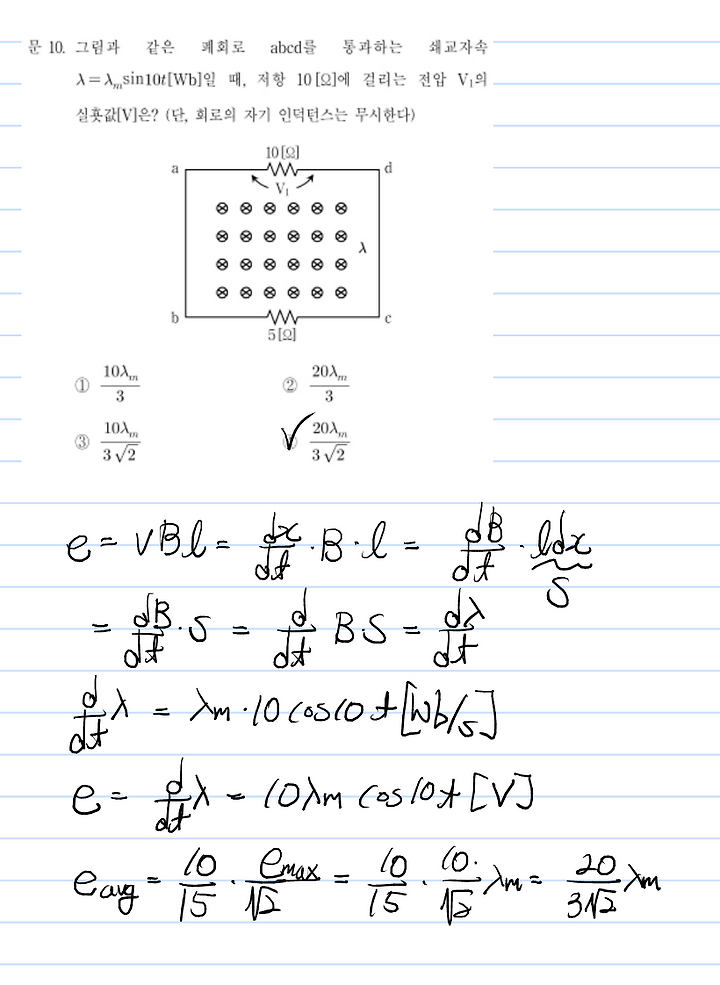 문 10. 그림과 같은 폐회로 abcd를 통과하는 쇄교자속
λ=λₘsin10t[Wb]일 때, 저항 10[Ω]에 걸리는 전압 V₁의
실횻값[V]은? (단, 회로의 자기 인덕턴스는 무시한다)
10[Ω]
a d
V₁
λ
b c
5[Ω]
① 10λₘ/3 ② 20λₘ/3
③ 10λₘ/3√2 ✓ 20λₘ/3√2
e = VBl = dx/dt · B · l = dB/dt · ldx
S
= dB/dt · S = d/dt BS = dλ/dt
d/dt λ = λm · 10 cos10t [Wb/s]
e = d/dt λ = 10λm cos10t [V]
eavg = 10/15 · emax/√2 = 10/15 · 10·/√2 λm = 20/3√2 λm